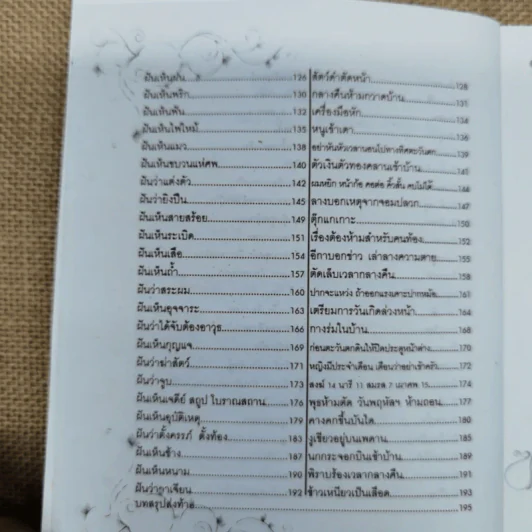 ฝันเห็นฝน 126
ฝันเห็นพริก 130
ฝันเห็นฟัน 132
ฝันเห็นไฟไหม้ 135
ฝันเห็นแมว 138
ฝันเห็นขบวนแห่ศพ 140
ฝันว่าแต่งตัว 142
ฝันว่ายิงปืน 145
ฝันเห็นสายสร้อย 149
ฝันเห็นระเบิด 151
ฝันเห็นเสือ 154
ฝันเห็นถ้ำ 157
ฝันว่าสระผม 160
ฝันเห็นอุจจาระ 163
ฝันว่าได้จับต้องอาวุธ 166
ฝันเห็นกุญแจ 169
ฝันว่าฆ่าสัตว์ 171
ฝันว่าจูบ 173
ฝันเห็นเจดีย์ สถูป โบราณสถาน 176
ฝันเห็นอุบัติเหตุ 179
ฝันว่าตั้งครรภ์ ตั้งท้อง 183
ฝันเห็นช้าง 187
ฝันเห็นหนาม 190
ฝันว่าอาเจียน 192
บทสรุปส่งท้าย
สัตว์ดำตัดหน้า 128
กลางคืนห้ามกวาดบ้าน 131
เครื่องมือหัก 134
หนูเข้าเตา 136
อย่าหันหัวเวลานอนไปทางทิศตะวันตก 139
ตัวเงินตัวทองคลานเข้าบ้าน 141
ผมหยิก หน้าก้อ คอต่อ คิ้วสั้น คบไม่ได้
ลางบอกเหตุจากจอมปลวก 147
ตุ๊กแกเกาะ 150
เรื่องต้องห้ามสำหรับคนท้อง 152
อีกาบอกข่าว เล่าลางความตาย 155
ตัดเล็บเวลากลางคืน 158
ปากจะแหว่ง ถ้าออกแรงเคาะปากหม้อ 161
เตรียมการวันเกิดล่วงหน้า 164
กางร่มในบ้าน 168
ก่อนตะวันตกดินให้ปิดประตูหน้าต่าง 170
หญิงมีประจำเดือน เตือนว่าอย่าเข้าครัว 172
สงฆ์ 14 นารี 11 สมรส 7 เผาศพ 15 174
พุธห้ามตัด วันพฤหัสฯ ห้ามถอน 177
คางคกขึ้นบันได 180
งูเขียวอยู่บนเพดาน 185
นกกระจอกบินเข้าบ้าน 189
พิราบร้องเวลากลางคืน 191
ข้าวเหนียวเป็นเลือด 193
195